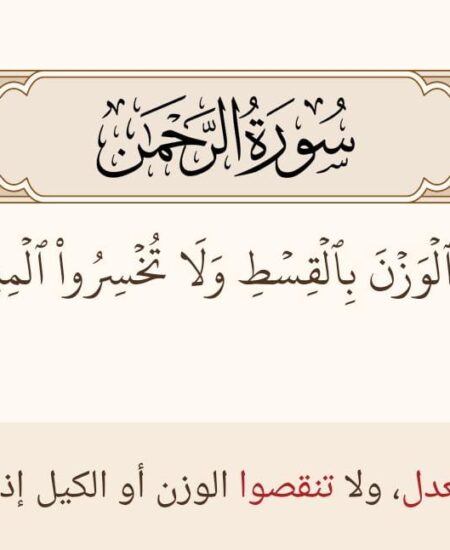 سُورَةُ الرَّحۡمَٰن
ٱلۡوَزۡنَ بِٱلۡقِسۡطِ وَلَا تُخۡسِرُواْ ٱلۡمِي
عدل، ولا تنقصوا الوزن أو الكيل إذ